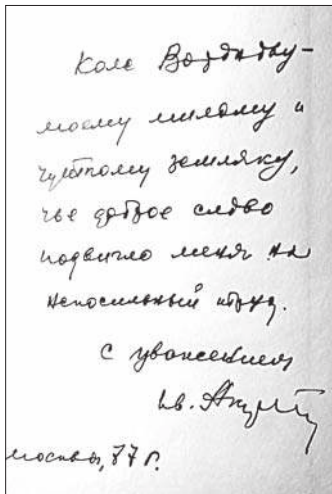 Коле
моему милому и
чуткому земляку,
чье доброе слово
подвигло меня на
непосильный труд.
с уважением
Ив. Акулов
Москва, 77 г.